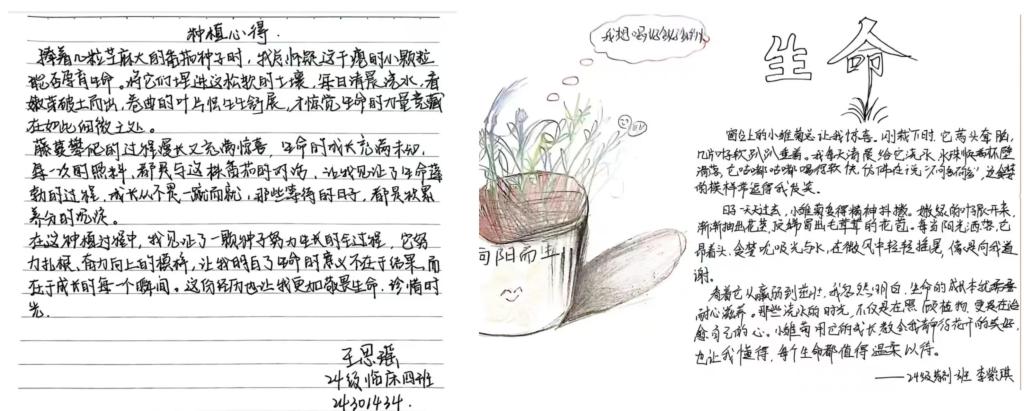 种植心得.
捧着几粒芝麻大的番茄种子时，我总怀疑这干瘪的小颗粒
能否孕育生命。将它们埋进这松软的土壤，每日清晨浇水，看
嫩芽破土而出，卷曲的叶片怯生生舒展，才惊觉生命的力量竟藏
在如此细微之处。
藤蔓攀爬的过程漫长又充满惊喜，生命的成长充满未知，
每一次的照料，都是与这株番茄的对话，让我见证了生命蓬
勃的过程，成长从不是一蹴而就，那些等待的日子，都是积累
养分的沉淀。
在这种植过程中，我见证了一颗种子努力生长的全过程，它努
力扎根、奋力向上的模样，让我明白了生命的意义不在于结果，而
在于成长的每一个瞬间。这份经历也让我更加敬畏生命，珍惜时
光.
王思瑶
24级临床四班
24301434.
我想喝
向阳而生
生命
窗台上的小雏菊总让我惊喜。刚栽下时，它蔫头耷脑，
几片叶软趴趴垂着。我每天清晨给它浇水，水珠顺着杯壁
滑落，它咕嘟咕嘟喝得欢快，仿佛在说
喝模样常逗得我发笑。
日子一天天过去，小雏菊变得精神抖擞。嫩绿的叶张开来，
渐渐抽出花茎，顶端冒出毛茸茸的花苞。每当阳光洒落，它
昂着头，贪婪吮吸光与水，在微风中轻轻摇晃，像是向我道
谢。
看着它从羸弱到茁壮，我忽然明白，生命的成长本就需要
耐心滋养。那些浇水的时光，不仅是在照顾植物，更是在治
愈自己的心。小雏菊用它的成长教会我静待花开的美好，
也让我懂得，每个生命都值得温柔以待。
——24级 班 李紫琪